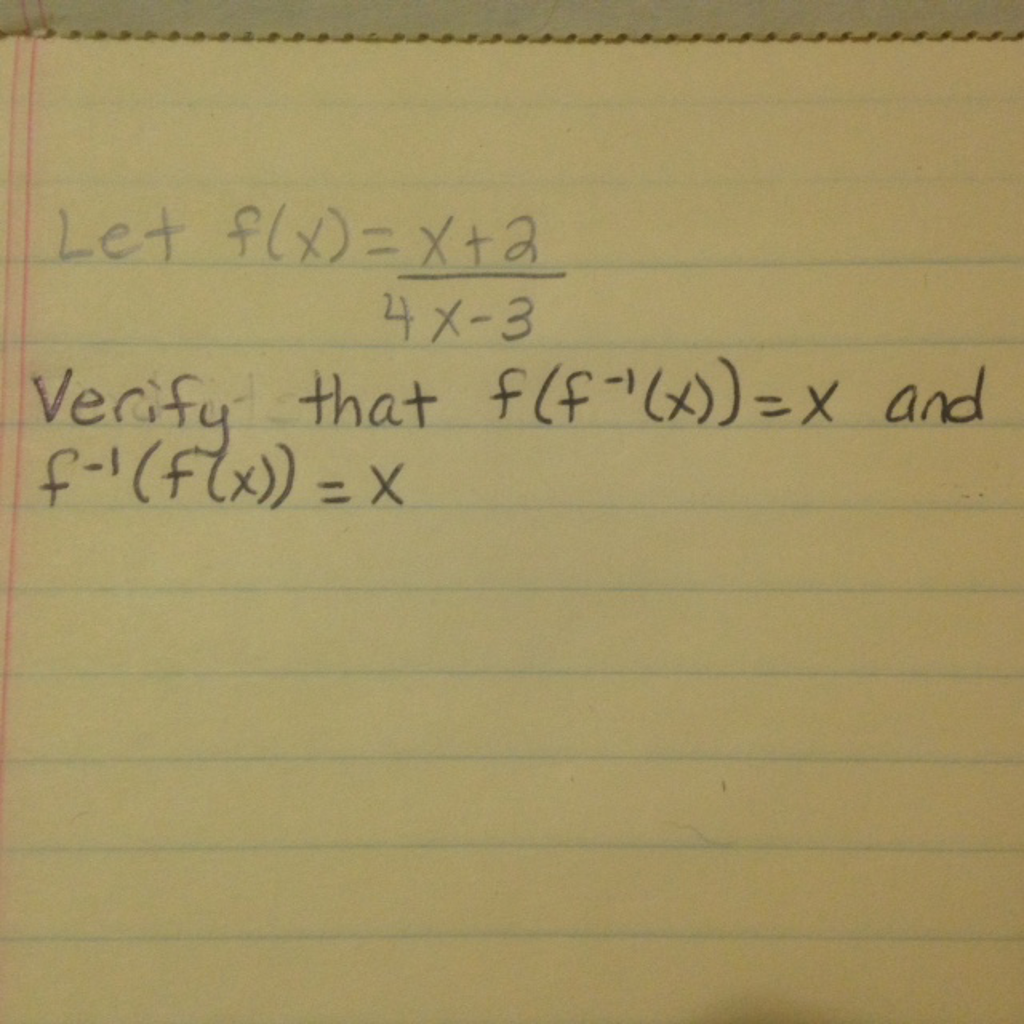 Let f(x) = x+2
4x-3
Verify that f(f⁻¹(x)) = x and
f⁻¹(f(x)) = x